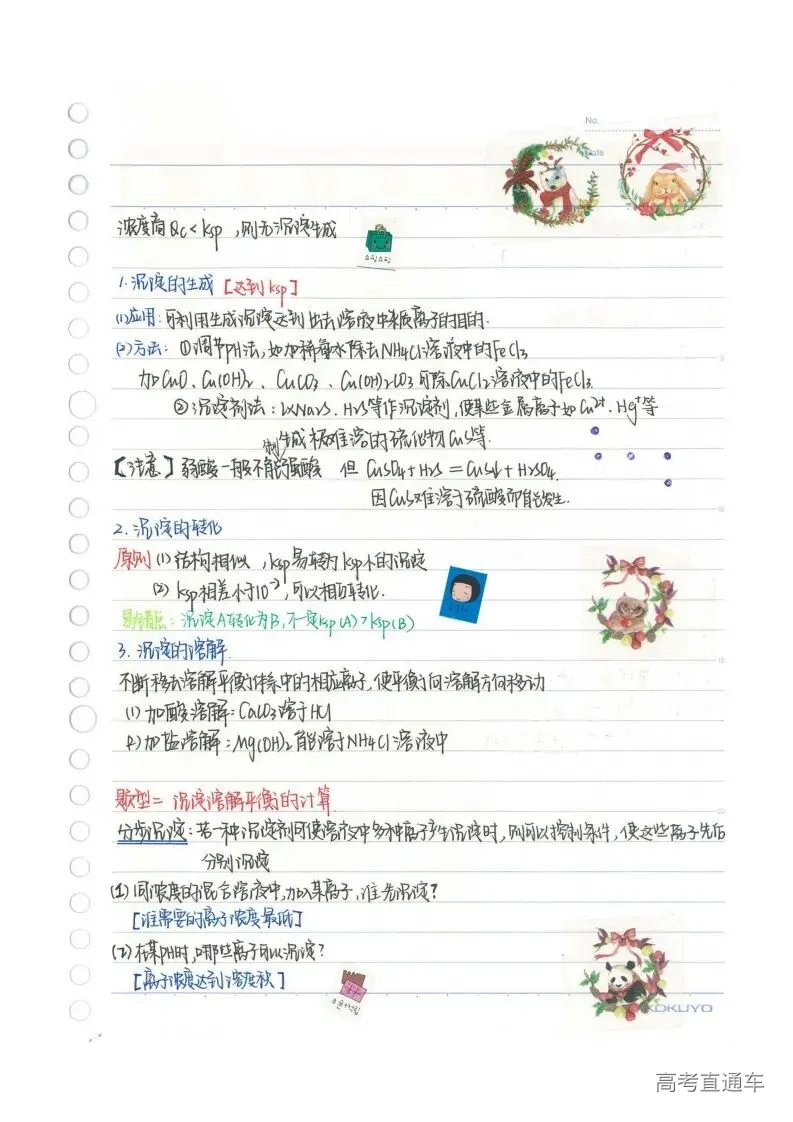 No.
浓度商 Qc < ksp ,则无沉淀生成
1.沉淀的生成 [达到ksp]
(1)应用:可利用生成沉淀达到出去溶液中杂质离子的目的.
(2)方法: ①调节PH法,如加稀氨水除去NH4Cl溶液中的FeCl3
加CuO、Cu(OH)2、CuCO3、Cu(OH)2CO3可除CuCl2溶液中的FeCl3.
②沉淀剂法:以Na2S、H2S等作沉淀剂,使某些金属离子如Cu2+、Hg+等
生成极难溶的硫化物CuS等.
【注意】弱酸一般不能制强酸 但 CuSO4+H2S=CuS↓+H2SO4.
因CuS难溶于硫酸而能发生.
2.沉淀的转化
原则 (1)结构相似 ,ksp易转为ksp小的沉淀
(2) ksp相差小于10-2,可以相互转化.
易错点:沉淀A转化为B,不一定ksp(A)>ksp(B)
3.沉淀的溶解.
不断移去溶解平衡体系中的相应离子,使平衡向溶解方向移动
(1)加酸溶解:CaCO3溶于HCl
加盐溶解:Mg(OH)2能溶于NH4Cl溶液中
题型二 沉淀溶解平衡的计算.
分步沉淀:若一种沉淀剂可使溶液中多种离子产生沉淀时,则可以控制条件,使这些离子先后
分别沉淀
(1)同浓度的混合溶液中,加入某离子,谁先沉淀?
[谁需要的离子浓度最低]
(2)在某PH时,哪些离子可以沉淀?
[离子浓度达到溶度积]
KOKUYO
高考直通车